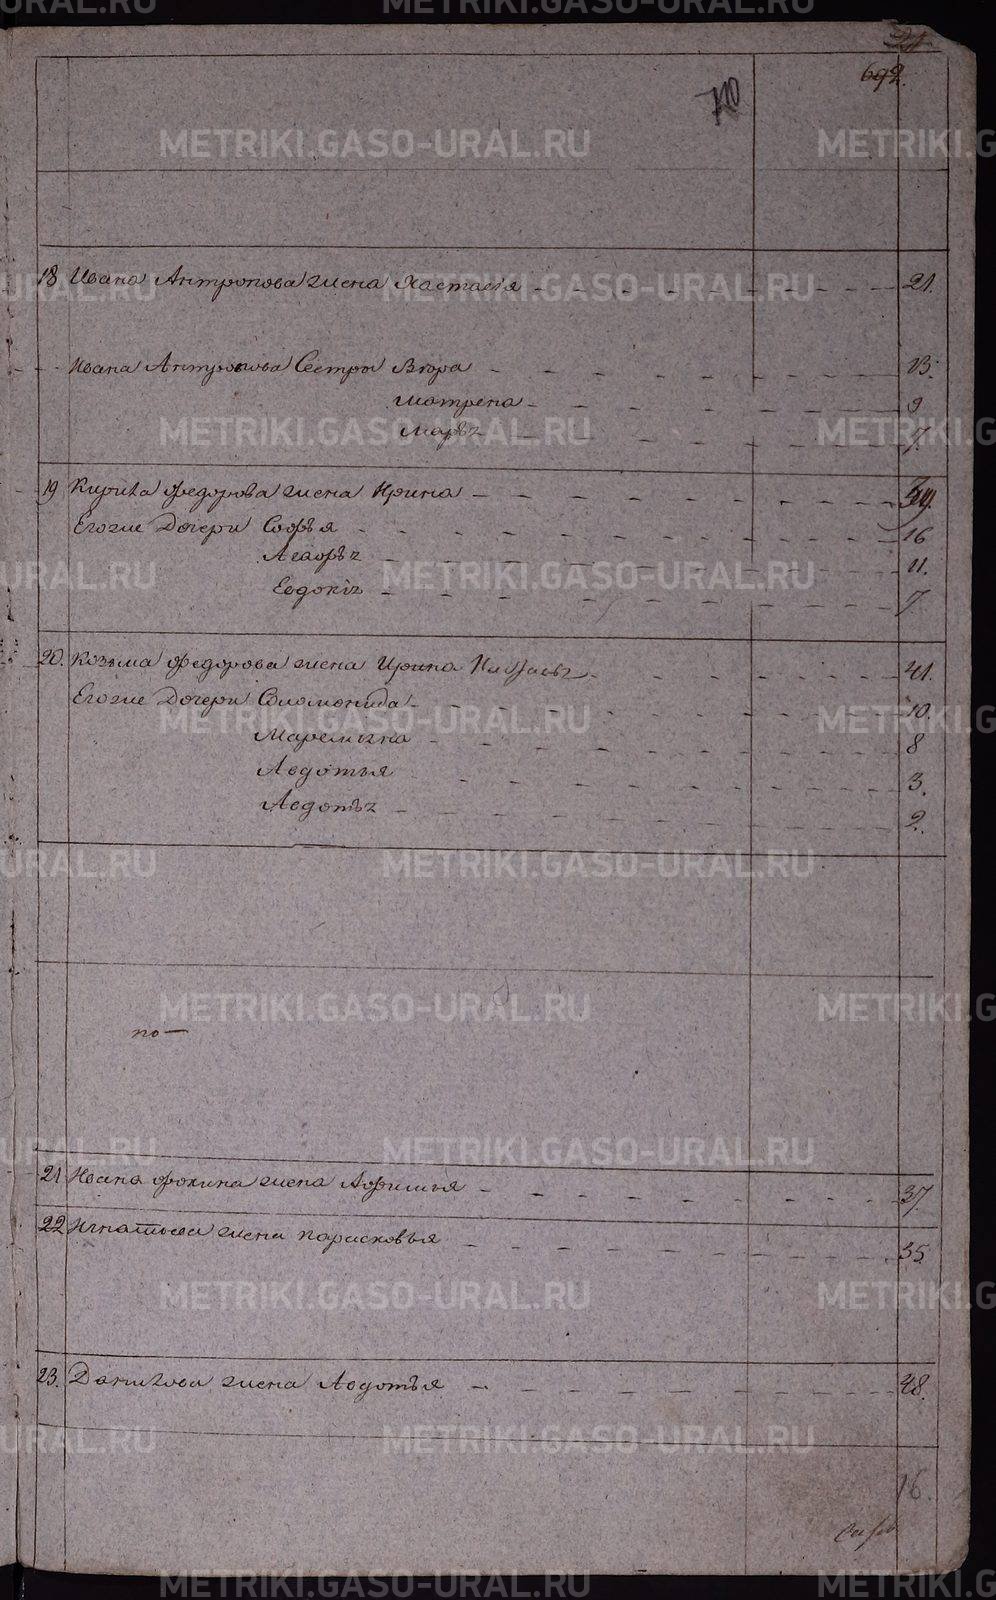 692.
710
18 Ивана Антропова жена Настасья 21.
Ивана Антропова Сестры Вѣра 13.
Матрена 9
Марья 7.
19 Кирила Федорова жена Ирина
Егоже Дочери Софья 16
11.
Евдокія 7.
20. Козьма Федорова жена Ирина 41.
Егоже Дочери Соломонида 10.
Маремьяна 8
Авдотья 3.
Авдотья 2.
по
21 Ивана Фокина жена Афимья 37.
22 Игнатьева жена Парасковья 35.
23. Данилова жена Авдотья 48.
16.
METRIKI.GASO-URAL.RU